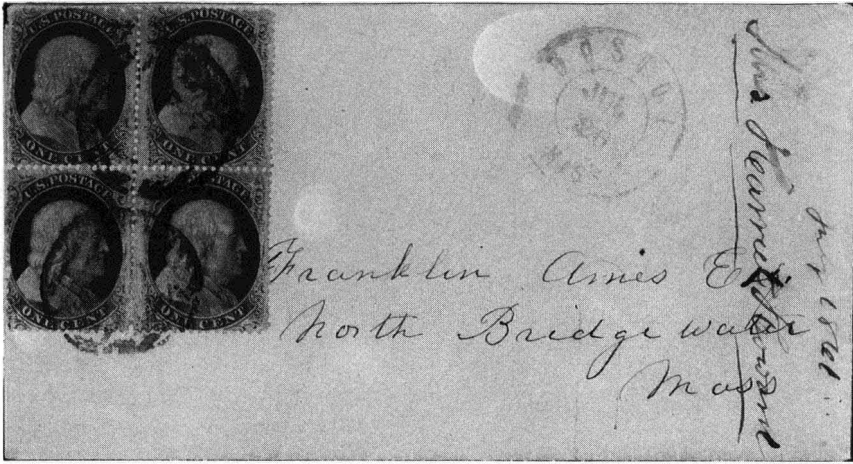 U.S. POSTAGE
ONE CENT
U.S. POSTAGE
ONE CENT
U.S. POSTAGE
ONE CENT
U.S. POSTAGE
ONE CENT
BOSTON
MASS
Franklin Ames Esq
North Bridgewater
Mass
1861